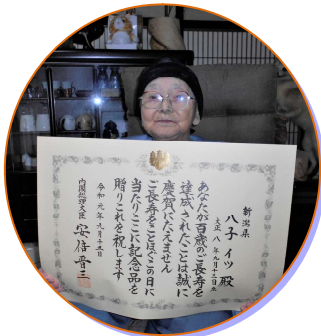 新潟県
八子イツ殿
大正八年九月十二日生
あなたが百歳のご長寿を
達成されたことは誠に
慶賀にたえません
ご長寿をことほぐこの日に
当たりここに記念品を
贈りこれを祝します
令和元年九月十五日
内閣総理大臣 安倍晋三